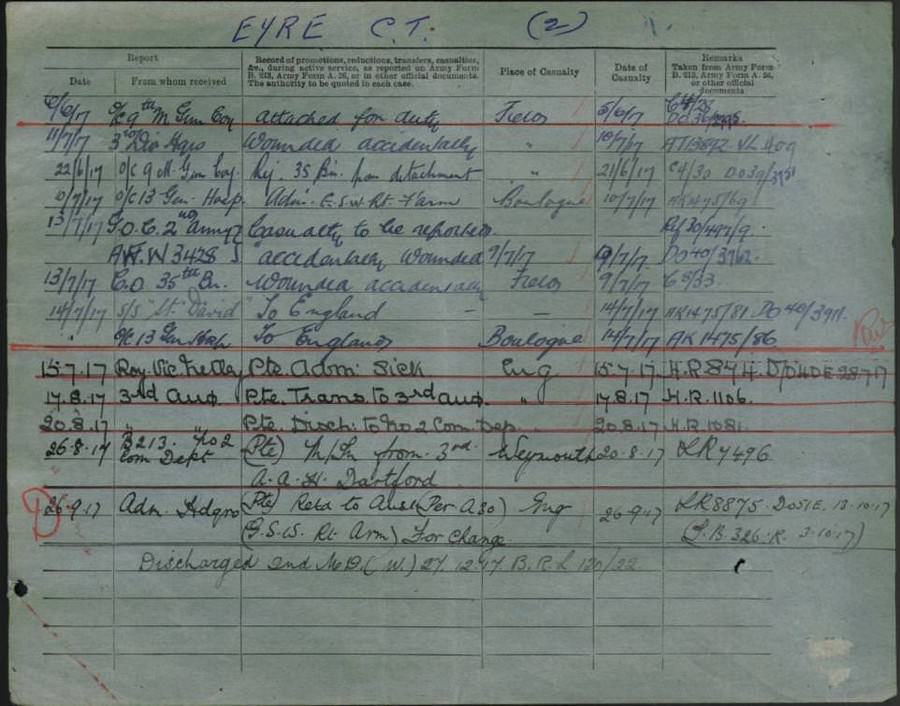 EYRE C.T. (2)
Report
Record of promotions, reductions, transfers, casualties, &c., during active service, as reported on Army Form B. 213, Army Form A. 36, or in other official documents. The authority to be quoted in each case.
Place of Casualty
Date of Casualty
Remarks Taken from Army Form B. 213, Army Form A. 36, or other official documents
Date From whom received
6/17 O/C 9th M Gun Coy attached for duty Field 5/6/17
11/7/17 3rd Div Hqrs Wounded accidentally " 10/7/17
22/6/17 O/C 9 M. Gun Coy. Rej. 35 Bn. from detachment " 21/6/17 C4/30 DO39/
10/7/17 O/C 13 Gen. Hosp. Adm. G.S.W. Rt. Arm Boulogne 10/7/17 AK1475/69
13/7/17 G.O.C. 2nd Army Casualty to be reported
A.F.W 3428 accidentally Wounded 9/7/17 9/7/17 DO40/3962
13/7/17 C.O. 35th Bn. Wounded accidentally Field 9/7/17 C8/33
14/7/17 S/S "St. David" To England — — 14/7/17 AK1475/81 DO 40/39
" O/C 13 Gen Hosp To England Boulogne 14/7/17 AK 1475/86
15.7.17 Roy. Vic. Netley Pte. Adm: Sick Eng 15.7.17 H.R.874.
17.8.17 3rd Aux. Pte. Trans. to 3rd Aux. " 17.8.17 H.R.1106.
20.8.17 " Pte. Disch: to No 2 Com. Dep. 20.8.17 H.R.1081.
26.8.17 B213. No 2 Com Dept (Pte) M/In from 3rd. Weymouth 20.8.17 LR7496
A.A.H. Dartford
D 26.9.17 Adm. Hdqrs (Pte) Retd to Aust (Per A30) Eng 26.9.17 LR8875. DO51E. 13.10.17
(G.S.W. Rt Arm) For Change. (L.B.326.R. 3.10.17)
Discharged 2nd M.D. (W.) 27.12.17 B.R.L 120/22